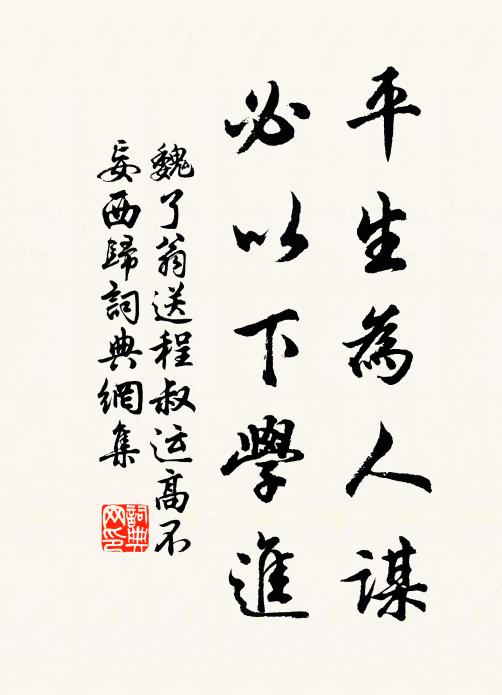 平生為人謀
必以下學進
魏了翁送程叔运高不
妄西歸詞典網集
詞典网印